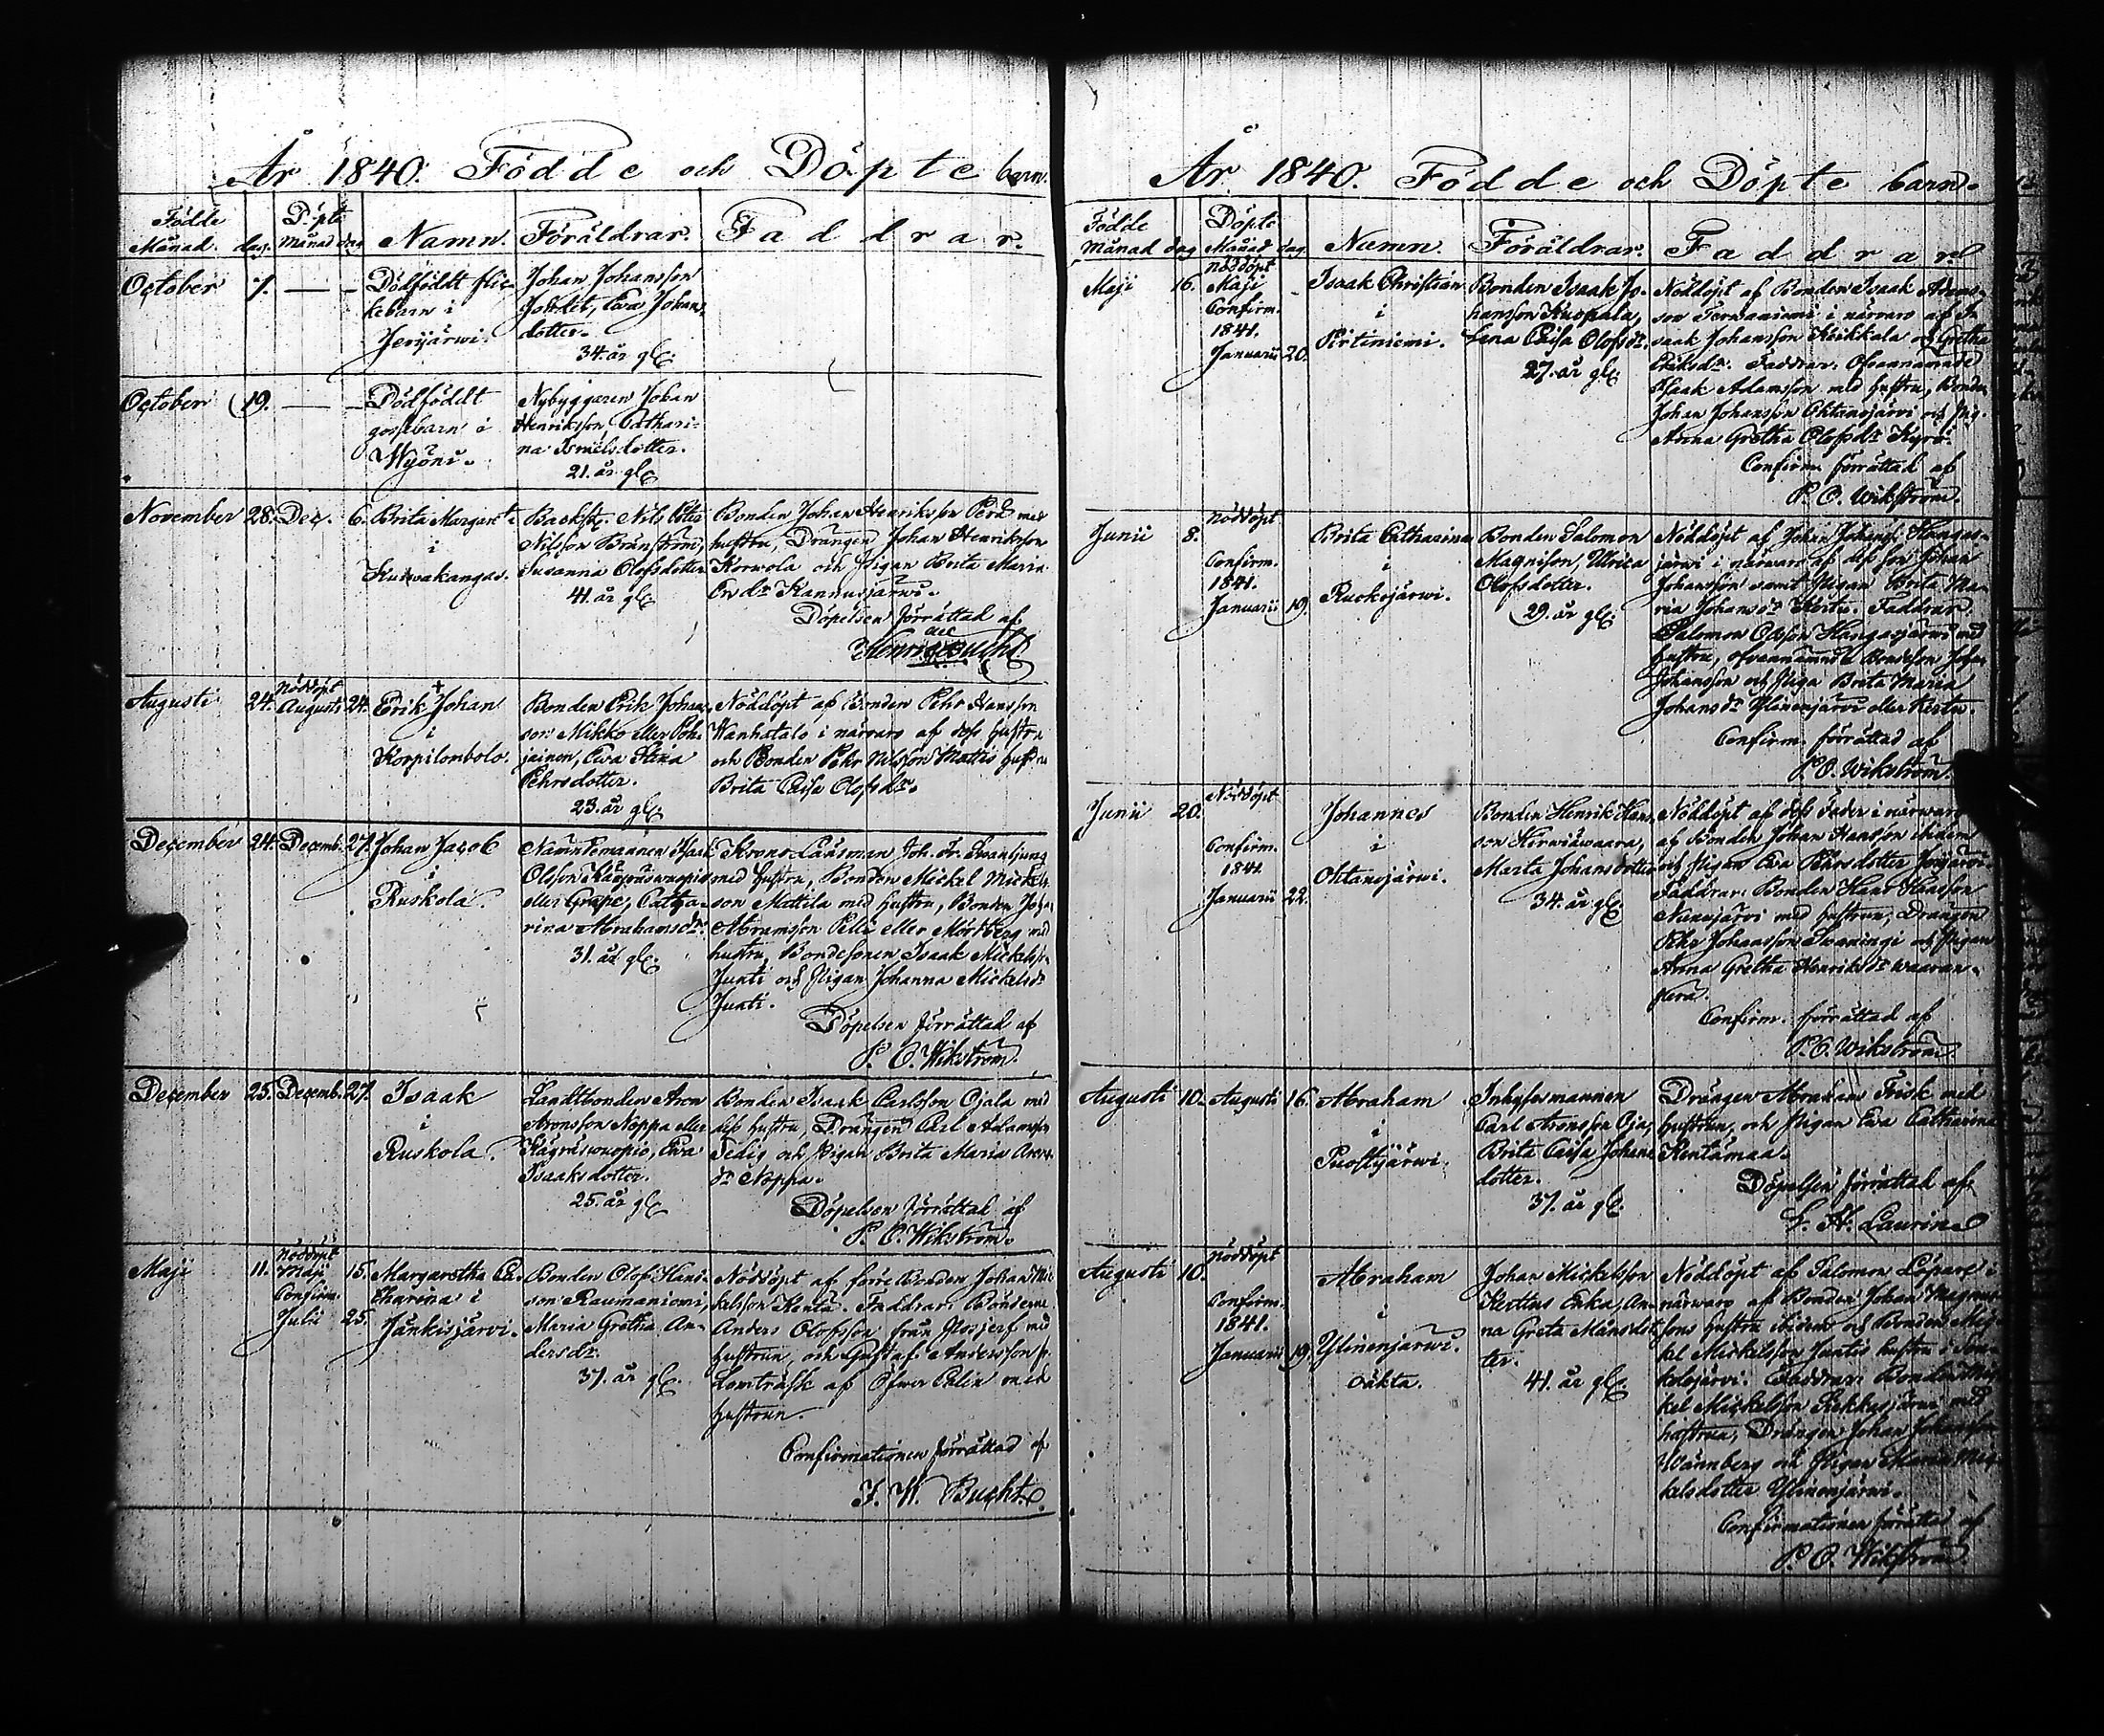 År 1840. Födde och Döpte barn.
Födde Månad. dag. Döpte Månad dag Namn. Föräldrar. Faddrar.
October 7. — —
Dödfödt flic-
kebarn i
Jerijärwi.
Johan Johansson
Ewa Johans
dotter.
34. år gl.
October 19. — —
Dödfödt
gossebarn i
Wyöni.
Nybyggaren Johan
Henriksson, Cathari-
na Ismelsdotter.
21. år gl.
November 28. Dec. 6.
Brita Margareta
i
Kuiwakangas.
Nils Petter
Nilsson Bränström,
Susanna Olofsdotter
41. år gl.
Bonden Johan Henriksson Perä med
hustru, Drängen Johan Henriksson
Korwola och Pigan Brita Maria
Kannusjärwi.
Döpelsen förrättad af
Augusti 24. Nöddöpt Augusti 24.
Erik Johan
i
Korpilombolo.
Bonden Erik Johans-
son Mikko eller Poh-
jainen, Ewa Stina
Pehrsdotter.
23. år gl.
Nöddöpt af Bonden Pehr Hansson
Wanhatalo i närvaro af dess hustru
och Bonden Pehr Nilsson Mattis hustru
Brita Caisa Olofsdr.
December 24. Decemb. 27.
Johan Jacob
i
Ruskola.
Nämndemannen Isak
Olsson
eller Grape, Catha-
rina Abrahamsdr.
31. år gl.
Krono Länsman Joh. Fr. Swanljung
med hustru, Bonden Mickel Mickels-
son Mattila med hustru, Bonden Joha
Abramsson Pello eller Mörtberg med
hustru, Bondesonen Isaak Mickelss.
Junti och Pigan Johanna Mickelsdr
Junti.
Döpelsen förrättad af
P. O. Wikström.
December 25. Decemb. 27.
Isaak
i
Ruskola.
Landtbonden Aron
Aronsson Noppa eller
Ewa
Isaaksdotter.
25. år gl.
Bonden Isaak Carlsson Ojala med
dess hustru, Drängen Carl Adamsson
Tedig och Pigan Brita Maria Arons
dr Noppa.
Döpelsen förrättad af
P. O. Wikström.
Maji 11. Nöddöpt Maji 15. Confirm. Julii 25.
Margaretha Ca-
tharina i
Jänkisjärvi.
Bonden Olof Hans-
son Raumaniemi,
Maria Gretha An-
dersdr.
37. år gl.
Nöddöpt af förre Bonden Johan Mic-
kelsson Kenta. Faddrar: Bönderne
Anders Olofsson från Mosjerf med
hustrun, och Gustaf Andersson fr.
Lomträsk af Öfwer Calix med
hustrun.
Confirmationen förrättad af
J. W. Bucht.
År 1840. Födde och Döpte barn.
Födde Månad dag Döpte Månad dag. Namn. Föräldrar. Faddrar
Maji 16. Nöddöpt Maji Confirm. 1841. Januarii 20.
Isaak Christian
i
Pirtiniemi.
Bonden Isaak Jo-
hansson Kuopala,
Lena Caisa Olofsdr.
27. år gl.
Nöddöpt af Bonden Isaak Adams-
son i närwaro af I-
saak Johansson Heikkala och Gretha
Eriksdr. Faddrar. Ofvannämnde
Isaak Adamsson med hustru, Bonden
Johan Johansson Ohtanajärvi och Pig.
Anna Gretha Olofsdr Kyrö.
Confirm. förrättad af
P. O. Wikström.
Junii 8. Nöddöpt Confirm. 1841. Januarii 19.
Brita Catharina
i
Ruokojärwi.
Bonden Salomon
Magnison, Ulrica
Olofsdotter.
29. år gl.
Nöddöpt af Johan Johanss. Hangas-
järwi i närwaro af dess son Johan
Johansson samt Pigan Brita Ma-
ria Johansdr Kertu. Faddrar
Salomon Olsson Hangasjärwi med
hustru, ofvannämnde Bondeson Johan
Johansson och Piga Brita Maria
Johansdr Ylinenjärvi eller Kertu.
Confirm. förrättad af
P. O. Wikström.
Junii 20. Nöddöpt Confirm. 1841. Januarii 22.
Johannes
i
Ohtanajärwi.
Bonden Henrik Hans-
son Hirwiäwaara,
Marta Johansdotter
34. år gl.
Nöddöpt af dess Fader i närwaro
af Bonden Johan Hansson ibidem
och Pigan Ewa Pehrsdotter
Faddrar. Bonden Hans Hansson
med hustrun, Drängen
Pehr Johansson och Pigan
Anna Gretha Henriksdr
Confirm. förrättad af
P. O. Wikström.
Augusti 10. Augusti 16.
Abraham
i
Puostijärwi.
Inhysesmannen
Carl Aronsson Oja,
Brita Caisa Johans
dotter.
37. år gl.
Drängen Abraham Frisk med
hustrun, och Pigan Ewa Catharina
Rentämaa.
Döpelsen förrättad af
L. H. Laurin
Augusti 10. Nöddöpt Confirm. 1841. Januarii 19.
Abraham
i
Ylinenjärwi.
oäkta.
Johan Mickelsson
Kerttus Enka, An-
na Greta Månsdot-
ter.
41. år gl.
Nöddöpt af Salomon Löpare i
närwaro af Bonden Johan Magnus-
sons hustru ibidem och Bonden Mic-
kel Mickelsson Juntis hustru i
Faddrar: Bonden Mic-
kel Mickelsson med
hustrun, Drängen Johan Johansson
Wännberg och Pigan Maria Mic-
kelsdotter Ylinenjärwi.
Confirmationen förrättad af
P. O. Wikström.